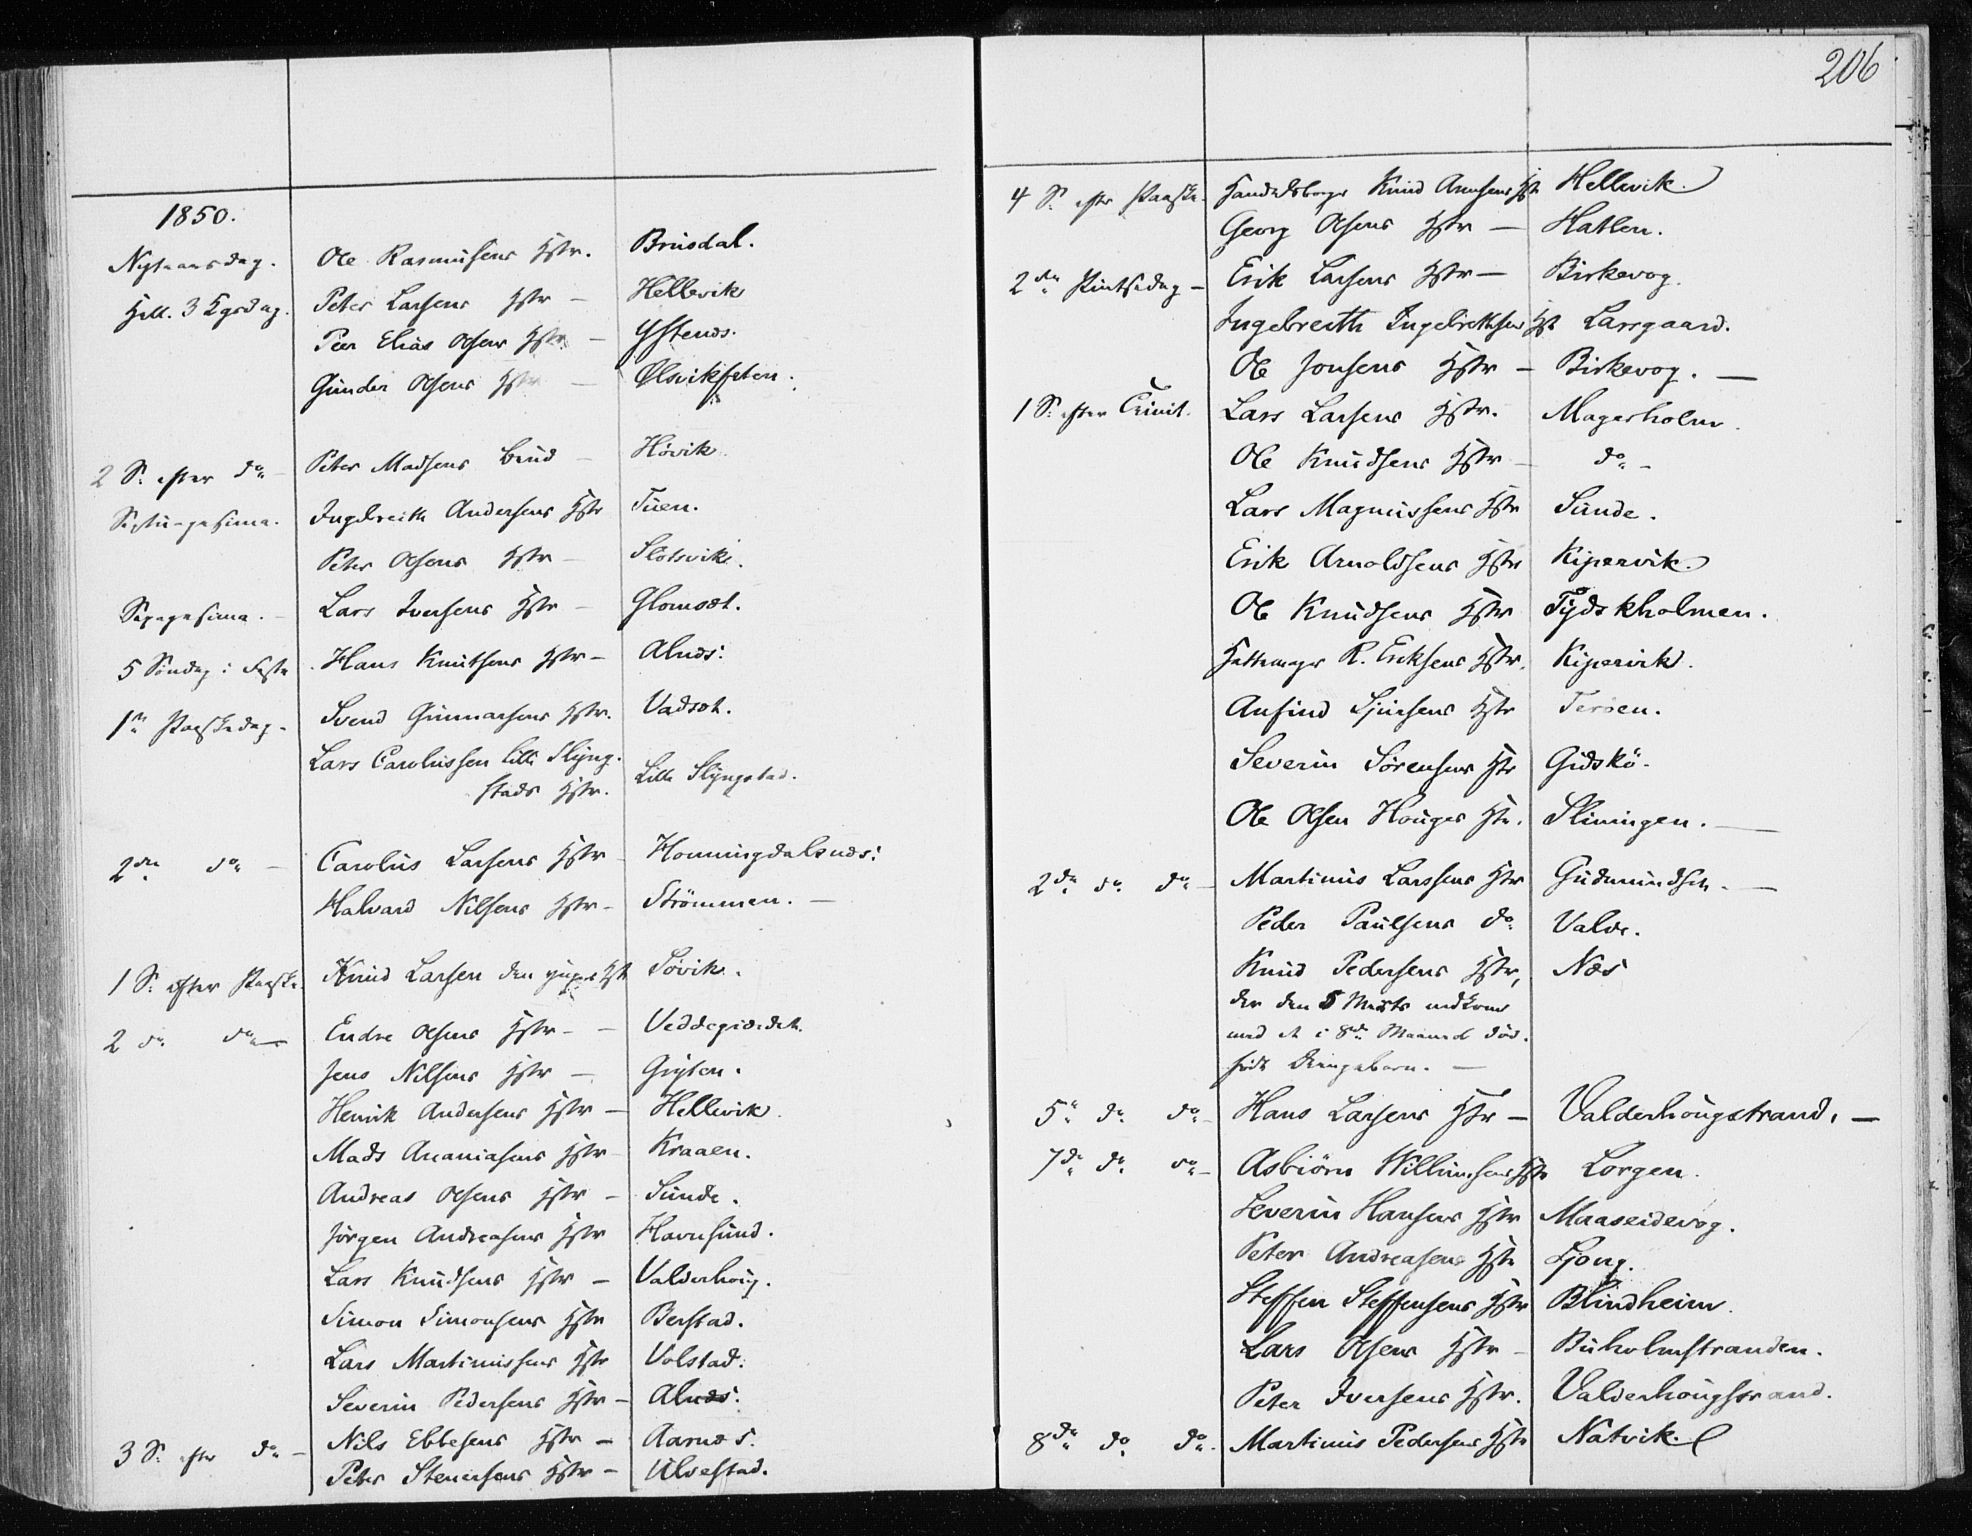 1850.
Nytaarsdag. Ole Rasmusens Hstr. Brusdal.
Hell. 3 Kgrsdag. Peter Larsens Hstr – Hellevik
Peer Elias Olsens Hstr – Ystenæs.
Gunder Olsens Hstr – Ølsvikfeten.
2 S. efter do – Peter Madsens Brud – Høvik
Septuagesima. Ingebreith Andersens Hstr Tuen.
Peter Olsens Hstr – Slotsvik.
Sexagesima. – Lars Iversens Hstr – Glomsæt.
5 Søndag i Faste Hans Knutsens Hstr – Alnæs.
1ste Paaskedag – Svend Gunnarsens Hstr. Vadsæt.
Lars Carolussen lille Slyng-
stads Hstr. Lille Slyngstad.
2den do – Carolus Larsens Hstr – Honningdalsnæs.
Halvard Nilsens Hstr – Strömmen. –
1 S. efter Paaske. Knud Larsen den yngres Hst Søvik.
2 do do – Endre Olsens Hstr – Veddegjerdet.
Jens Nilsens Hstr – Gryten.
Henrik Andersens Hstr – Hellevik
Mads Ananiasens Hstr – Kraaen.
Andreas Olsens Hstr – Sunde.
Jørgen Andreasens Hstr Havnsund.
Lars Knudsens Hstr – Valderhoug.
Simon Simonsens Hstr Berstad.
Lars Martinussens Hstr Volstad.
Severin Pedersens Hstr – Alnæs.
3 S. efter do – Nils Ebbesens Hstr – Aarnæs.
Peter Stenersens Hstr – Ulvestad.
206
4 S. efter Paaske. Handelsborger Knud Hst Hellevik.
Georg Olsens Hstr – Hatlen.
2den Pintsedag – Erik Larsens Hstr – Birkevog.
Ingebreith Ingebrethsens Hst Larsgaard.
Ole Jonsens Hstr – Birkevog. –
1 S. efter Trinit. Lars Larsens Hstr. Magerholm.
Ole Knudsens Hstr – do –
Lars Magnussens Hstr Sunde.
Erik Arnoldsens Hstr Kipervik.
Ole Knudsens Hstr Tydskholmen.
Hattemager R. Eriksens Hstr. Kipervik.
Anfind Sjursens Hstr Terøen.
Severin Sørensens Hstr Gidskö.
Ole Olsen Houges Hstr. Sliningen. –
2den do do – Martinus Larssens Hstr Gudmundset. –
Peder Paulsens do Valde.
Knud Pedersens Hstr, Næs
der den 5 Marts nedkom
med et i 8de Maaned død-
født Drengebarn. –
5te do do – Hans Larsens Hstr – Valderhougstrand. –
7de do do – Asbiörn Willumsens Hstr Lorgen.
Severin Hansens Hstr Maaseidevog.
Peter Andreasens Hstr Ljong.
Steffen Steffensens Hstr Blindheim.
Lars Olsens Hstr – Buholmstranden.
Peter Iversens Hstr. Valderhougstrand.
8de do do. Martinus Pedersens Hstr Natvik.